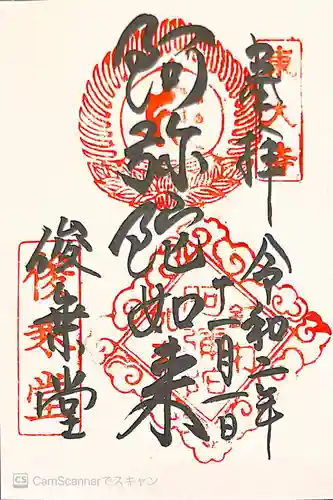 奉拝
東大寺
令和二年
十一月一日
阿弥陀如来
俊乗堂
俊乗堂
CS CamScannerでスキャン